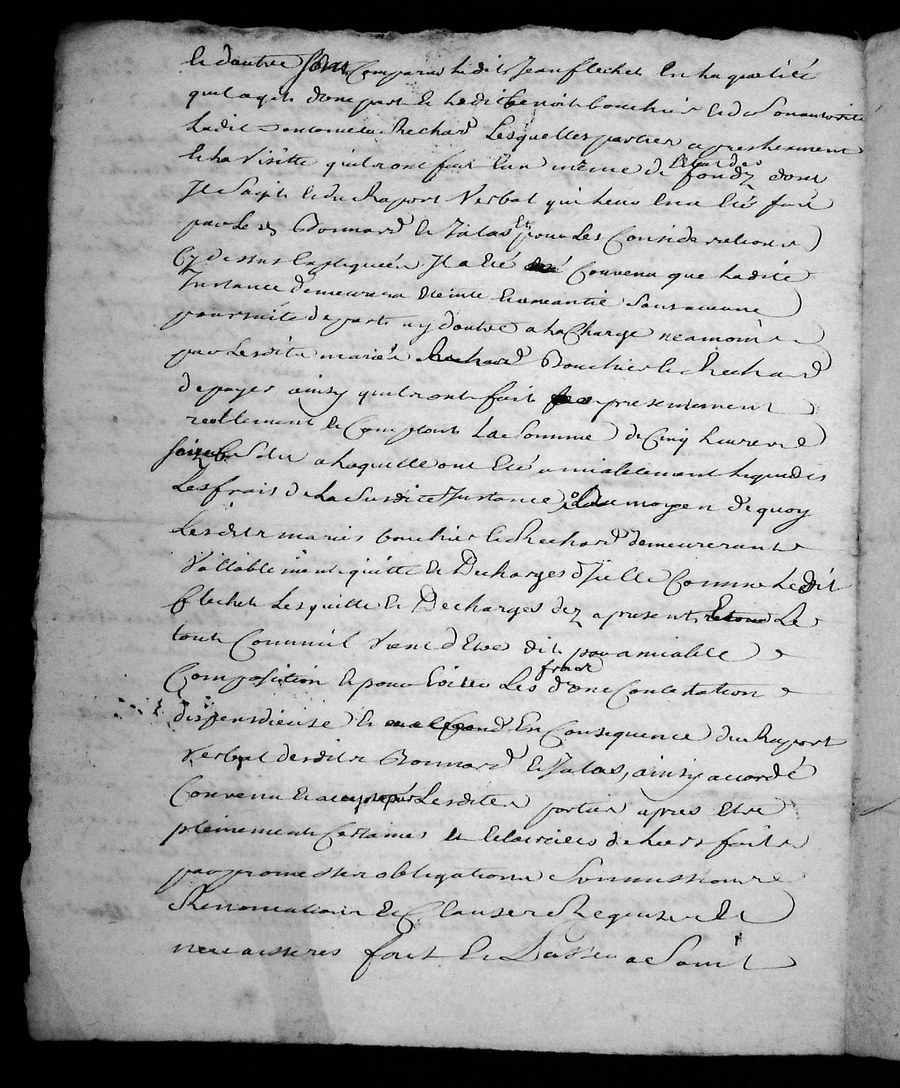 et d'autre sont comparus ledit Jean flechet en la qualité
quil agit d'une part et ledit benoit bouchier et de son autorité
ladite Rechard Lesquelles parties apres
la Visitte quil ont fait l'un même de l'état des fondz dont
Il s'agit et du Raport Verbal qui leur en a été fait
par Les srs Bonnard et Jalas et pour Les Considerations
Cy dessus Expliquées, Il a été Convenu que ladite
Instance demeurera éteinte et amantie sans aucune
poursuite de part ny d'autre a la Charge neamoins
par Lesdits mariés Bouchier et Rechard
de payer ainsy quil ont fait presentement
reellement et Comptant La Somme de Cinq Livres
seize Sols a laquelle ont été amiablement liquidés
Les frais de La Susdite Instance, au moyen de quoy
Lesdits mariés bouchier et Rechard demeureront
Vallablement quitte et Decharges d'Icelle Comme Ledit
flechet Les quitte et Decharges dez a present, Le
tout Comm'il Vient d'Etre dit par amiable
Composition et pour Eviter Les fraix d'une Contestation
dispendieuse et En Consequence du Raport
Verbal desdits srs Bonnard et Jalas, ainsy accordé
Convenu et accepté par Lesdites parties apres Etre
pleinement Certaines et Eclaircies de Leurs faits
par promesses obligations Soumissions
Renonciations et Clauses Requises et
necaisseres fait et Passé a Saint